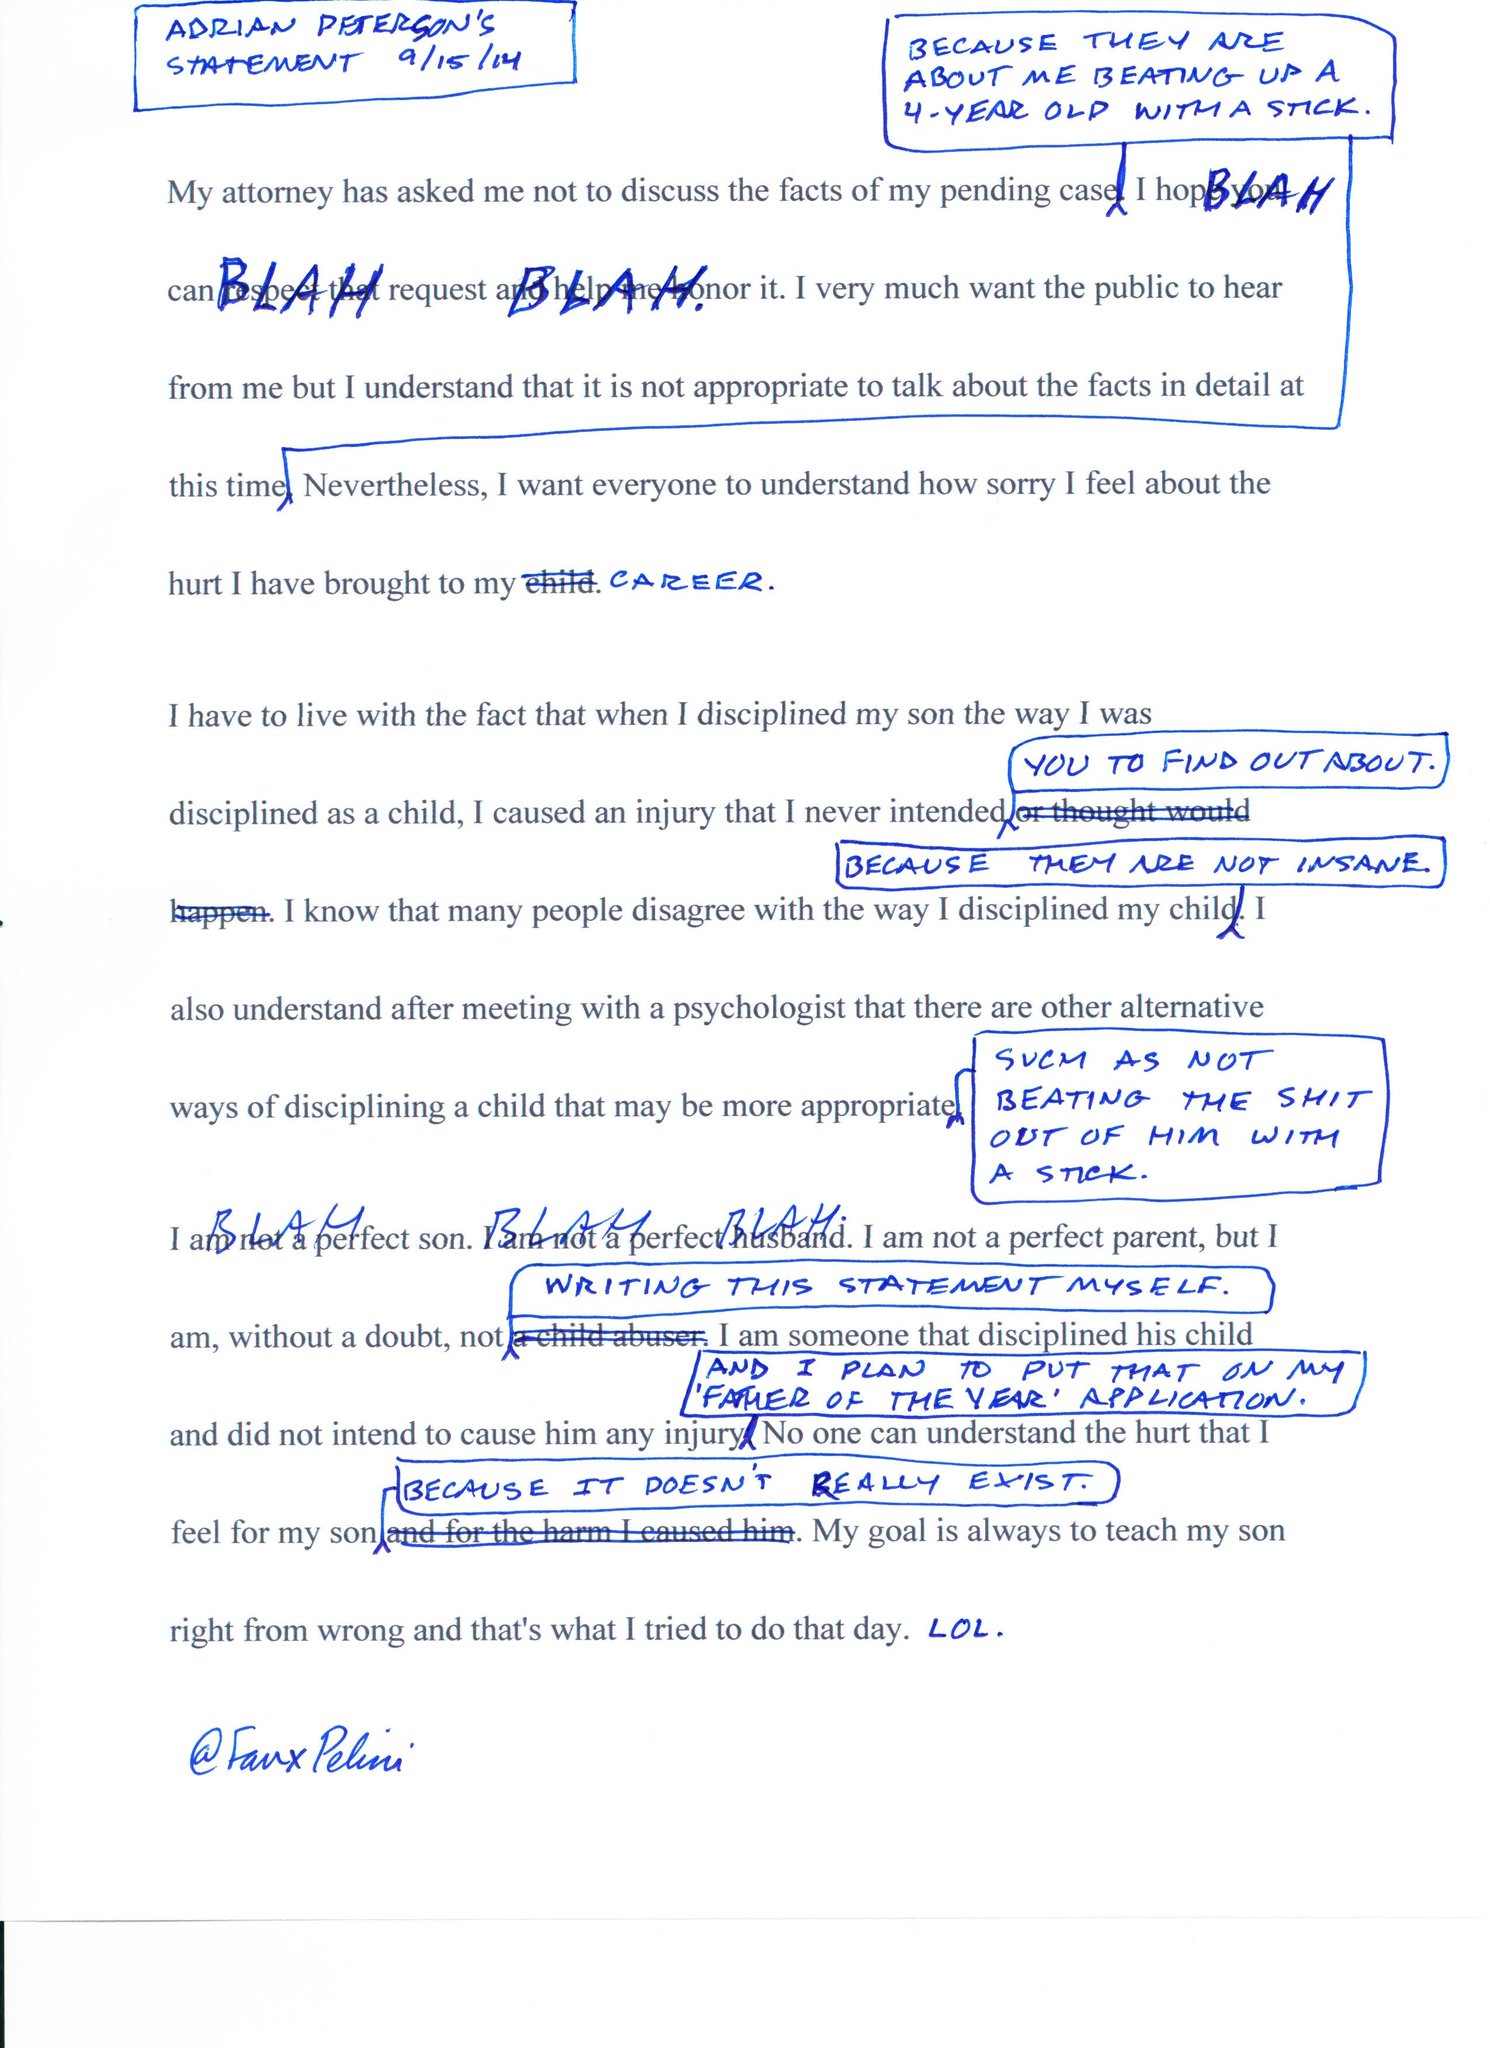 ADRIAN PETERSON'S
STATEMENT 9/15/14
BECAUSE THEY ARE
ABOUT ME BEATING UP A
4-YEAR OLD WITH A STICK.
My attorney has asked me not to discuss the facts of my pending case. I hope you BLAH
can respect that request and help me honor it. I very much want the public to hear
BLAH BLAH.
from me but I understand that it is not appropriate to talk about the facts in detail at
this time. Nevertheless, I want everyone to understand how sorry I feel about the
hurt I have brought to my child. CAREER.
I have to live with the fact that when I disciplined my son the way I was
YOU TO FIND OUT ABOUT.
disciplined as a child, I caused an injury that I never intended or thought would
BECAUSE THEY ARE NOT INSANE.
happen. I know that many people disagree with the way I disciplined my child. I
also understand after meeting with a psychologist that there are other alternative
ways of disciplining a child that may be more appropriate.
SUCH AS NOT
BEATING THE SHIT
OUT OF HIM WITH
A STICK.
BLAH BLAH BLAH.
I am not a perfect son. I am not a perfect husband. I am not a perfect parent, but I
WRITING THIS STATEMENT MYSELF.
am, without a doubt, not a child abuser. I am someone that disciplined his child
AND I PLAN TO PUT THAT ON MY
'FATHER OF THE YEAR' APPLICATION.
and did not intend to cause him any injury. No one can understand the hurt that I
BECAUSE IT DOESN'T REALLY EXIST.
feel for my son and for the harm I caused him. My goal is always to teach my son
right from wrong and that's what I tried to do that day. LOL.
@FauxPelini